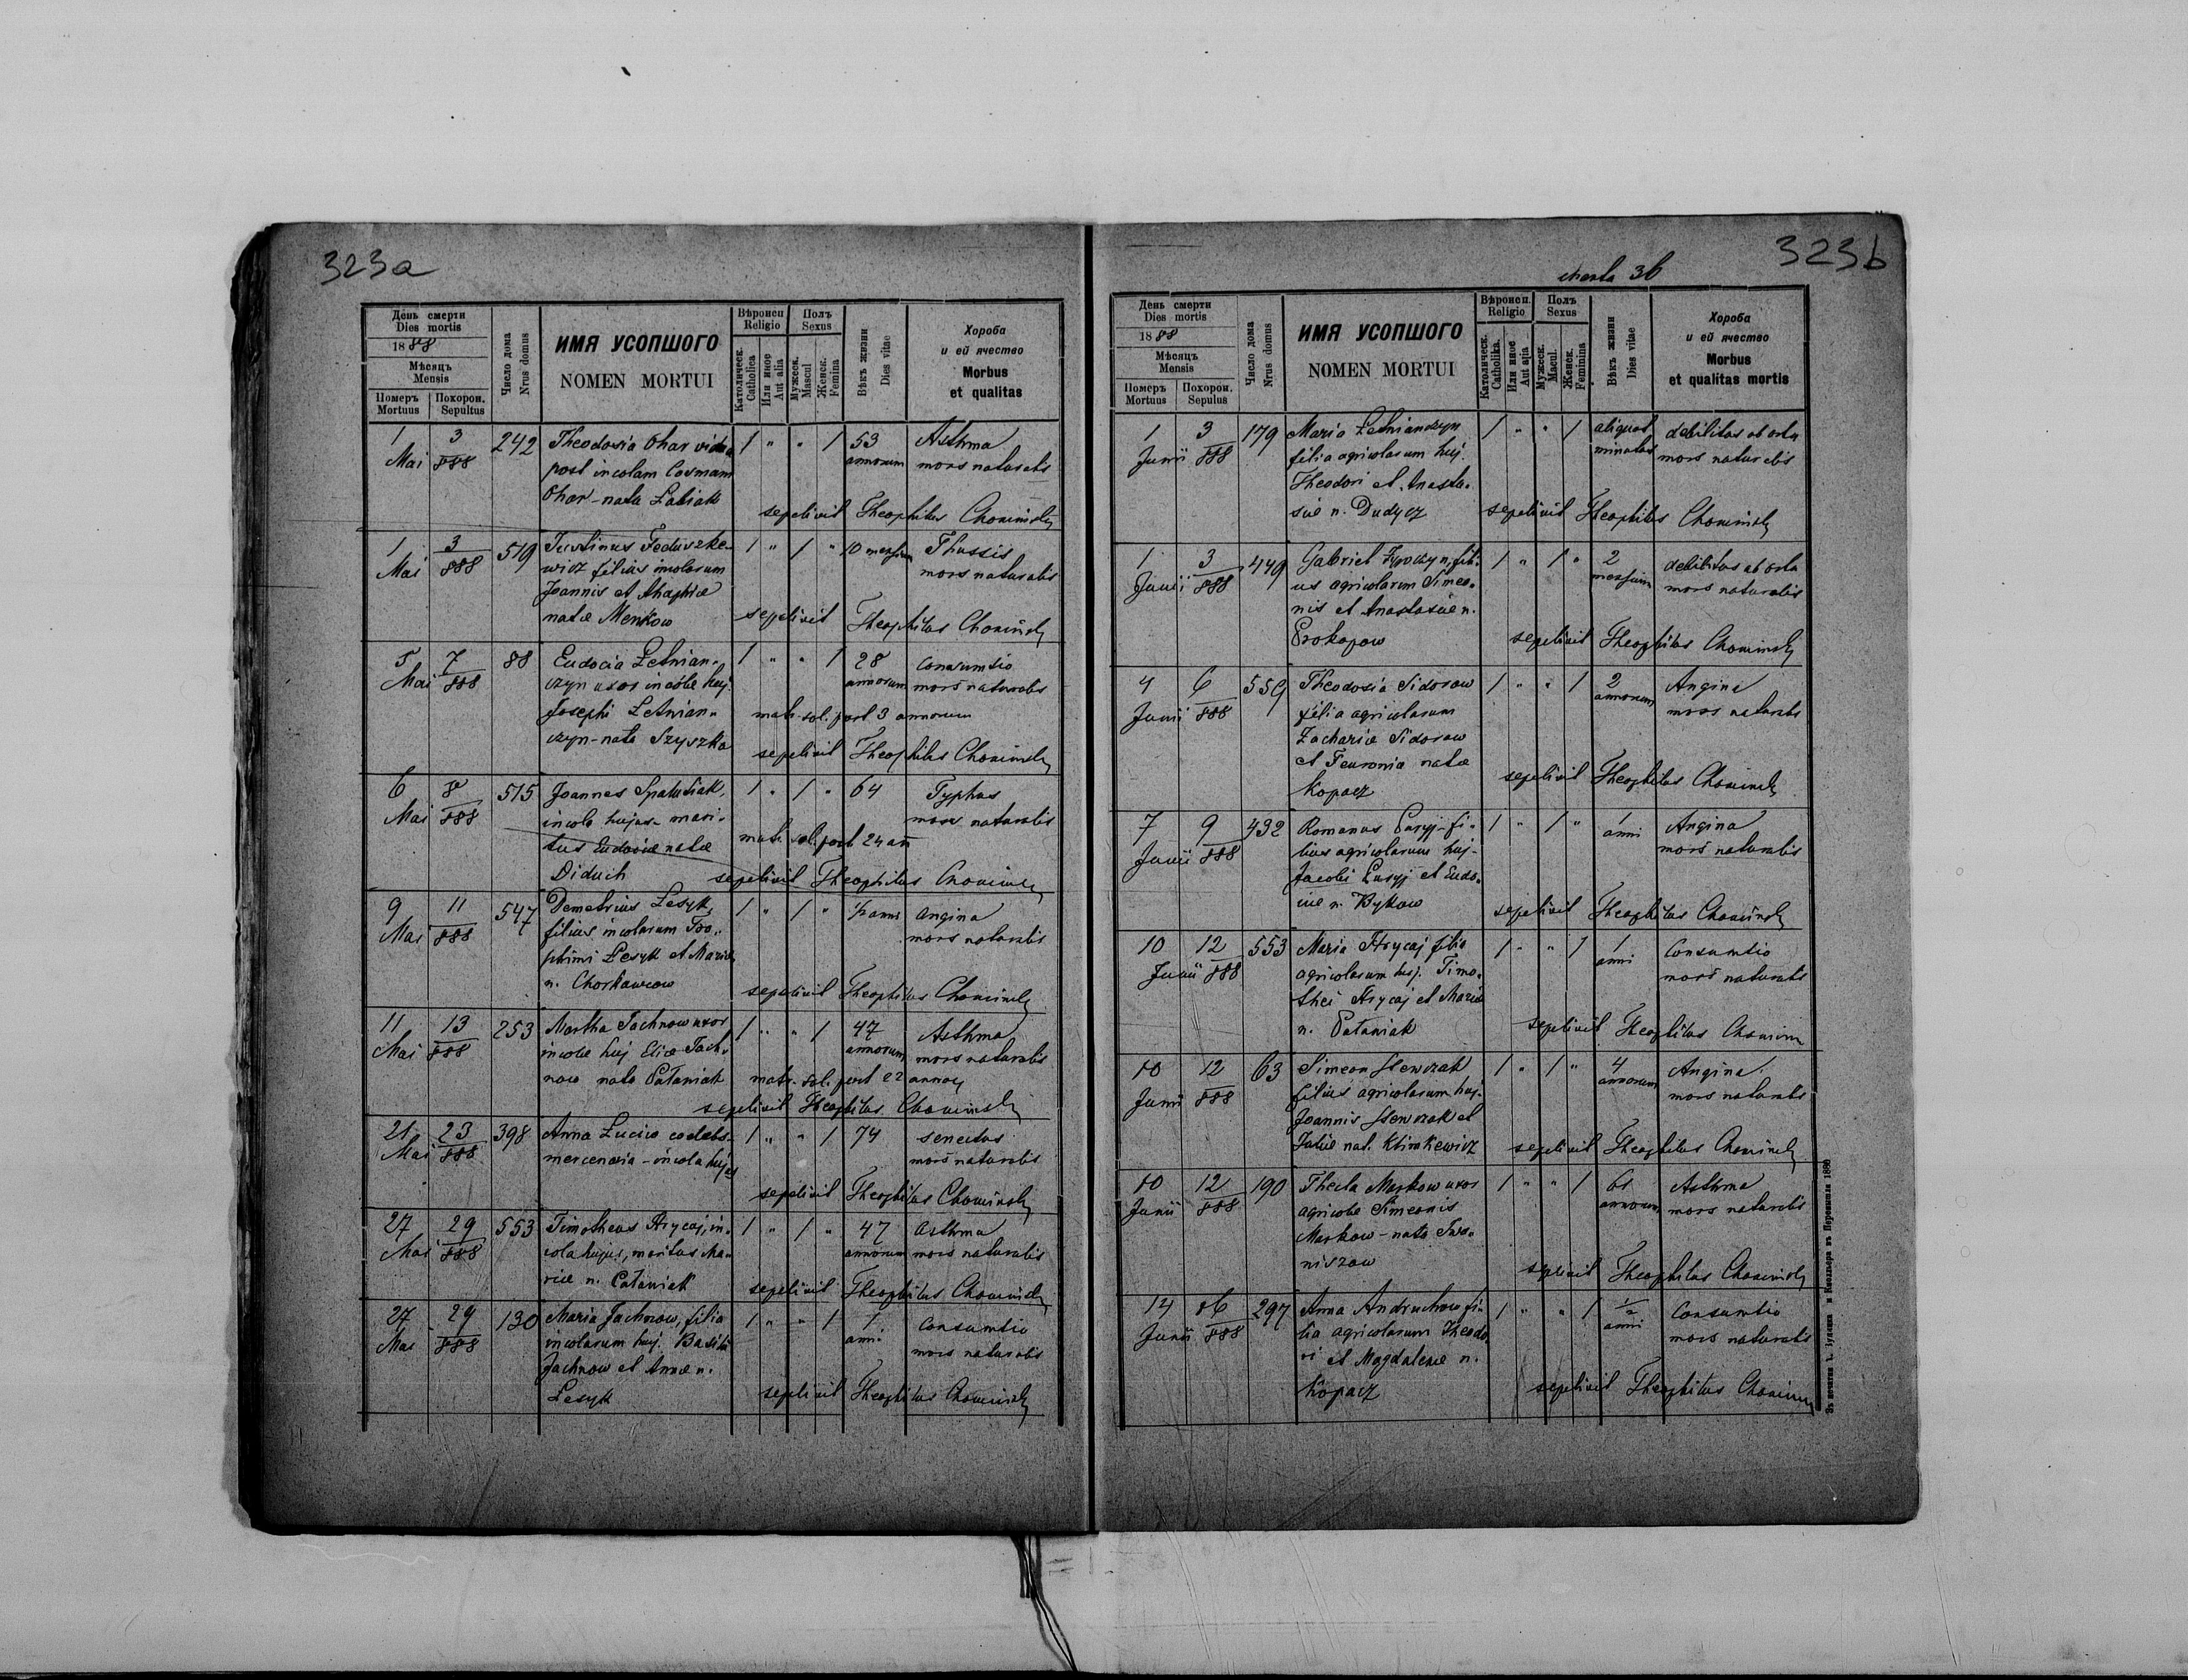 323a
День смерти
Dies mortis
1888
Мѣсяцъ
Mensis
Номеръ
Mortuus
Похорон.
Sepultus
Число дома
Nrus domus
ИМЯ УСОПШОГО
NOMEN MORTUI
Вѣроисп
Religio
Католическ.
Catholica
Или иное
Aut alia
Полъ
Sexus
Мужеск.
Mascul
Женск.
Femina
Вѣкъ жизни
Dies vitae
Хороба
и ей ячество
Morbus
et qualitas
1 3 242 Theodosia Ohar vidua 1 " " 1 53 Asthma
Mai 888 post incolam Cosmam annorum mors naturalis
Ohar - nata Łabiak
sepelivit Theophilus Chominsky
1 3 519 Justinus Feduszke- 1 " 1 " 10 mensium Thussis
Mai 888 wicz filius incolarum mors naturalis
Joannis et Ahaphiæ
natæ Menkow sepelivit Theophilus Chominsky
5 7 88 Eudocia Letnian- 1 " " 1 28 consumtio
Mai 888 czyn uxor incolæ huj. annorum mors naturalis
Josephi Letnian- matr. sol. post 3 annorum
czyn - nata Szyszka sepelivit Theophilus Chominsky
6 8 515 Joannes Spatusiak, 1 " 1 " 64 Typhus
Mai 888 incola hujus mari- mors naturalis
tus Eudociæ natæ matr. sol. post 24 an
Diduch sepelivit Theophilus Chominsky
9 11 547 Demetrius Lesyk, 1 " 1 " ½ anni angina
Mai 888 filius incolarum Tro- mors naturalis
phimi Lesyk et Mariæ
n. Chorkawcow sepelivit Theophilus Chominsky
11 13 253 Martha Jachnow uxor 1 " " 1 47 Asthma
Mai 888 incolæ huj Eliæ Jach- annorum mors naturalis
now nata Pataniak matr. sol. post 22 annor
sepelivit Theophilus Chominsky
21 23 398 Anna Luciw coelebs 1 " " 1 74 senectus
Mai 888 mercenaria - incola hujus mors naturalis
sepelivit Theophilus Chominsky
27 29 553 Timotheus Hrycaj, in- 1 " 1 " 47 Asthma
Mai 888 cola hujus, maritus Ma- annorum mors naturalis
riæ n. Pataniak sepelivit Theophilus Chominsky
27 29 130 Maria Jachnow, filia 1 " " 1 1 consumtio
Mai 888 incolarum huj. Basilii anni mors naturalis
Jachnow et Annæ n.
Lesyk sepelivit Theophilus Chominsky
323b
charta 36
День смерти
Dies mortis
1888
Мѣсяцъ
Mensis
Номеръ
Mortuus
Похорон.
Sepulus
Число дома
Nrus domus
ИМЯ УСОПШОГО
NOMEN MORTUI
Вѣроисп.
Religio
Католическ.
Catholika.
Или иное
Aut alia
Полъ
Sexus
Мужеск.
Mascul.
Женск.
Feminina
Вѣкъ жизни
Dies vitae
Хороба
и ей ячество
Morbus
et qualitas mortis
1 3 179 Maria Letnianczyn 1 " " 1 aliquot debilitas ab ortu
Junii 888 filia agricolarum huj. minutas mors naturalis
Theodori et Anasta-
siæ n. Dudycz sepelivit Theophilus Chominsky
1 3 449 Gabriel fili- 1 " 1 " 2 debilitas ab ortu
Junii 888 us agricolarum Simeo- mensium mors naturalis
nis et Anastasiæ n.
Prokopow sepelivit Theophilus Chominsky
4 6 559 Theodosia Sidorow 1 " " 1 2 Angina
Junii 888 filia agricolarum annorum mors naturalis
Zachariæ Sidorow
et Feuronia natæ sepelivit Theophilus Chominsky
Kopacz
7 9 432 Romanus fi- 1 " 1 " 1 Angina
Junii 888 lius agricolarum huj- anni mors naturalis
Jacobi et Eudo-
ciæ n. Bykow sepelivit Theophilus Chominsky
10 12 553 Maria Hrycaj filia 1 " " 1 1 Consumtio
Junii 888 agricolarum huj. Timo- anni mors naturalis
thei Hrycaj et Mariæ
n. Pataniak sepelivit Theophilus Chominsky
10 12 63 Simeon Hewczak 1 " 1 " 4 Angina
Junii 888 filius agricolarum huj. annorum mors naturalis
Joannis Hewczak et
Juliæ nat. Klimkewicz sepelivit Theophilus Chominsky
10 12 190 Thecla Markow uxor 1 " " 1 61 Asthma
Junii 888 agricolæ Simeonis annorum mors naturalis
Markow - nata Iwa-
niszow sepelivit Theophilus Chominsky
14 16 297 Anna Andruchow fi- 1 " " 1 ½ Consumtio
Junii 888 lia agricolarum Theodo- anni mors naturalis
ri et Magdalenæ n.
Kopacz sepelivit Theophilus Chominsky